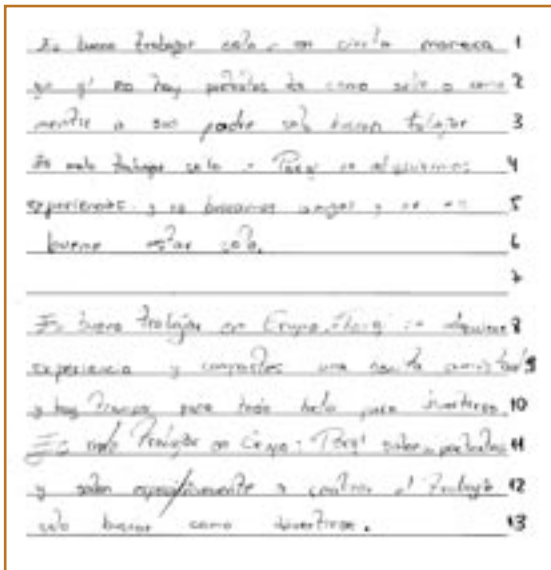 Es bueno trabajar solo - en cierta manera 1
ya q' no hay pretextos de como salir o como 2
mentir a sus padre solo buscan trabajar 3
Es malo trabajar solo - Porq' no adquirimos 4
experiencias y no buscamos amigos y no es 5
bueno estar solo. 6
7
Es bueno trabajar en Grupo. Porq' se adquiere 8
experiencia y compartes una bonita amistad 9
y hay Tiempo para todo hasta para divertirse 10
Es malo Trabajar en Grupo: Porq' salen pretextos 11
y salen a el Trabajo 12
solo buscan como divertirse. 13